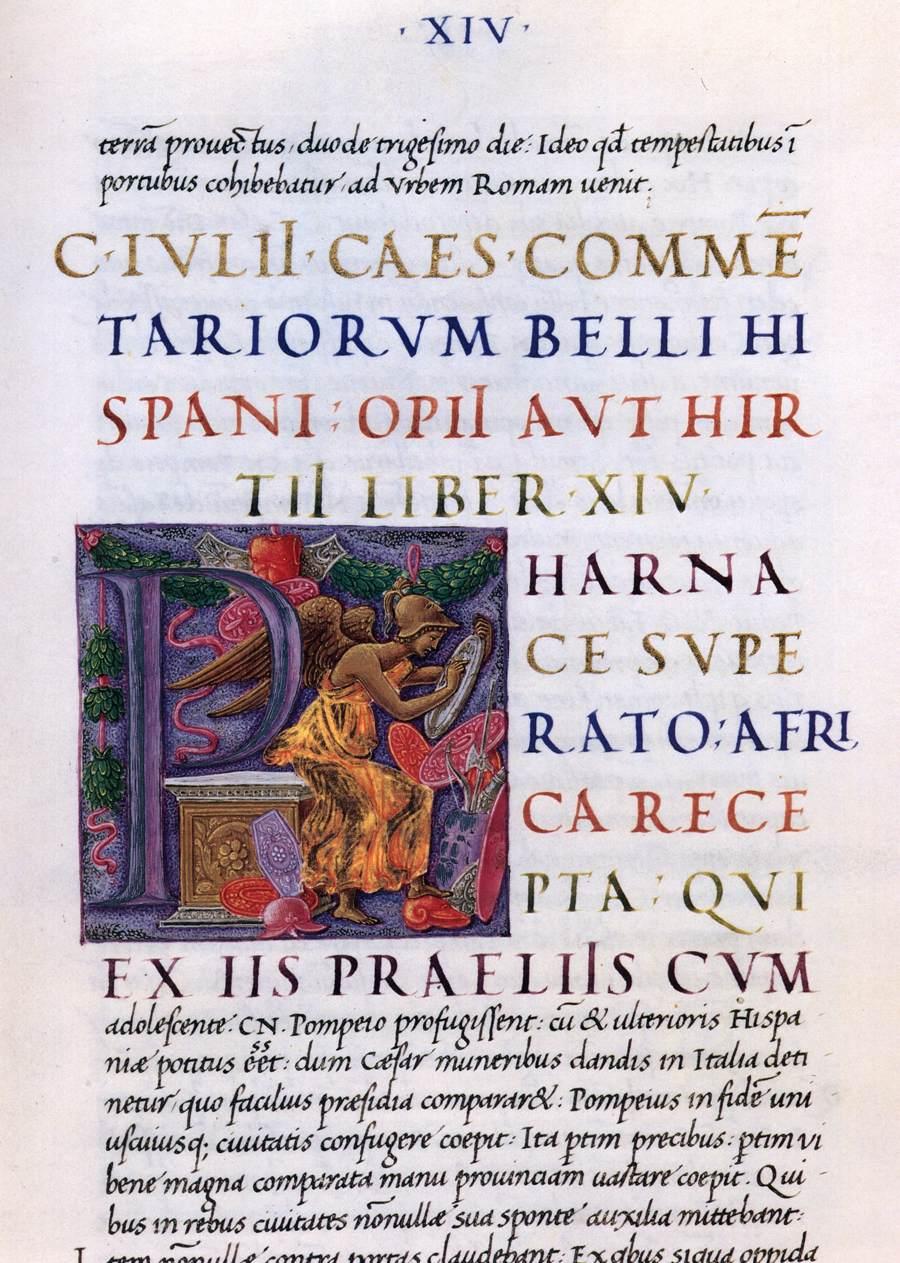 · XIV ·
terrā prouectus, duodetrigesimo die: Ideo qđ tempestatibus ī
portubus cohibebatur, ad Vrbem Romam uenit.
C·IVLII·CAES·COMMĒ
TARIORVM BELLI HI
SPANI: OPII AVT HIR
TII LIBER·XIV·
PHARNA
CE SVPE
RATO; AFRI
CA RECE
PTA: QVI
EX IIS PRAELIIS CVM
adolescente. CN. Pompeio profugissent: cū & ulterioris Hispa
niæ potitus eēt: dum Cæsar muneribus dandis in Italia deti
netur, quo facilius præsidia comparar&: Pompeius in fidē uni
uscuiusq; ciuitatis confugere coepit: Ita ꝑtim precibus: ꝑtim vi
bene magna comparata manu prouinciam uastare coepit. Qui
bus in rebus ciuitates nōnullæ sua sponte auxilia mittebant:
Item nōnullæ contra portas claudebant: Ex qbus siqua oppida